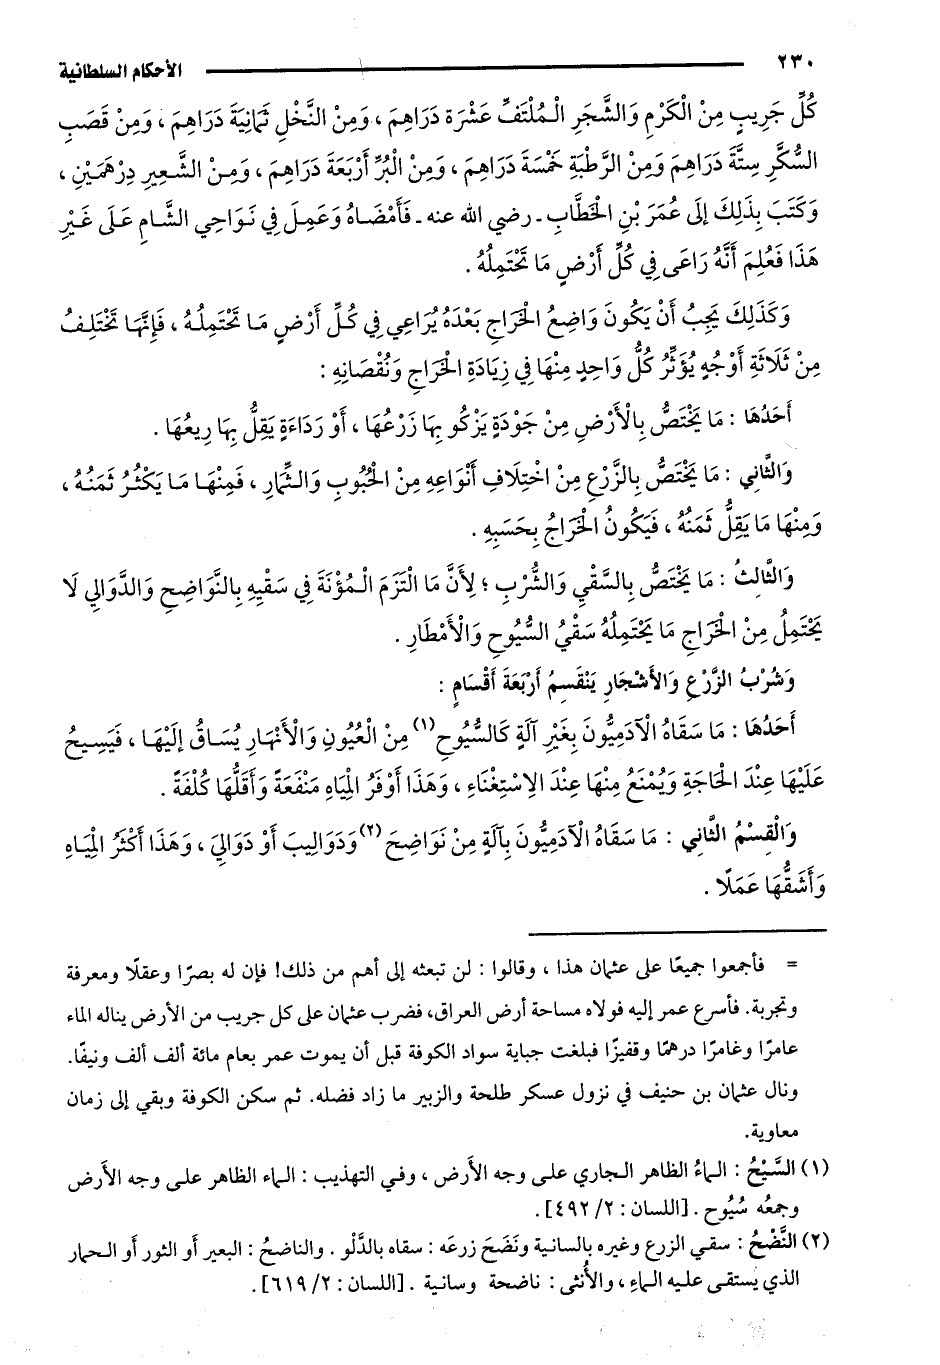 ٢٣٠ الأحكام السلطانية
كُلِّ جَرِيبٍ مِنْ الْكَرْمِ وَالشَّجَرِ الْمُلْتَفِّ عَشْرَةَ دَرَاهِمَ ، وَمِنْ النَّخْلِ ثَمَانِيَةَ دَرَاهِمَ ، وَمِنْ قَصَبِ
السُّكَّرِ سِتَّةَ دَرَاهِمَ وَمِنْ الرَّطْبَةِ خَمْسَةَ دَرَاهِمَ ، وَمِنْ الْبُرِّ أَرْبَعَةَ دَرَاهِمَ ، وَمِنْ الشَّعِيرِ دِرْهَمَيْنِ ،
وَكَتَبَ بِذَلِكَ إلَى عُمَرَ بْنِ الْخَطَّابِ ـ رضي الله عنه ـ فَأَمْضَاهُ وَعَمِلَ فِي نَوَاحِي الشَّامِ عَلَى غَيْرِ
هَذَا فَعُلِمَ أَنَّهُ رَاعَى فِي كُلِّ أَرْضٍ مَا تَحْتَمِلُهُ .
وَكَذَلِكَ يَجِبُ أَنْ يَكُونَ وَاضِعُ الْخَرَاجِ بَعْدَهُ يُرَاعِي فِي كُلِّ أَرْضٍ مَا تَحْتَمِلُهُ ، فَإِنَّهَا تَخْتَلِفُ
مِنْ ثَلَاثَةِ أَوْجُهٍ يُؤَثِّرُ كُلُّ وَاحِدٍ مِنْهَا فِي زِيَادَةِ الْخَرَاجِ وَنُقْصَانِهِ :
أَحَدُهَا : مَا يَخْتَصُّ بِالْأَرْضِ مِنْ جَوْدَةٍ يَزْكُو بِهَا زَرْعُهَا ، أَوْ رَدَاءَةٍ يَقِلُّ بِهَا رِيعُهَا .
وَالثَّانِي : مَا يَخْتَصُّ بِالزَّرْعِ مِنْ اخْتِلَافِ أَنْوَاعِهِ مِنْ الْحُبُوبِ وَالثِّمَارِ ، فَمِنْهَا مَا يَكْثُرُ ثَمَنُهُ ،
وَمِنْهَا مَا يَقِلُّ ثَمَنُهُ ، فَيَكُونُ الْخَرَاجُ بِحَسَبِهِ .
وَالثَّالِثُ : مَا يَخْتَصُّ بِالسَّقْيِ وَالشُّرْبِ ؛ لِأَنَّ مَا الْتَزَمَ الْمُؤْنَةَ فِي سَقْيِهِ بِالنَّوَاضِحِ وَالدَّوَالِي لَا
يَحْتَمِلُ مِنْ الْخَرَاجِ مَا يَحْتَمِلُهُ سَقْيُ السُّيُوحِ وَالْأَمْطَارِ .
وَشُرْبُ الزَّرْعِ وَالأَشْجَارِ يَنْقَسِمُ أَرْبَعَةَ أَقْسَامٍ :
أَحَدُهَا : مَا سَقَاهُ الْآدَمِيُّونَ بِغَيْرِ آلَةٍ كَالسُّيُوحِ(١) مِنْ الْعُيُونِ وَالْأَنْهَارِ يُسَاقُ إلَيْهَا ، فَيَسِيحُ
عَلَيْهَا عِنْدَ الْحَاجَةِ وَيُمْنَعُ مِنْهَا عِنْدَ الِاسْتِغْنَاءِ ، وَهَذَا أَوْفَرُ الْمِيَاهِ مَنْفَعَةً وَأَقَلُّهَا كُلْفَةً .
وَالْقِسْمُ الثَّانِي : مَا سَقَاهُ الْآدَمِيُّونَ بِآلَةٍ مِنْ نَوَاضِحَ(٢) وَدَوَالِيبَ أَوْ دَوَالِيَ ، وَهَذَا أَكْثَرُ الْمِيَاهِ
وَأَشَقُّهَا عَمَلًا .
= فأجمعوا جميعًا على عثمان هذا ، وقالوا : لن تبعثه إلى أهم من ذلك! فإن له بصرًا وعقلًا ومعرفة
وتجربة. فأسرع عمر إليه فولاه مساحة أرض العراق، فضرب عثمان على كل جريب من الأرض يناله الماء
عامرًا وغامرًا درهمًا وقفيزًا فبلغت جباية سواد الكوفة قبل أن يموت عمر بعام مائة ألف ألف ونيفًا.
ونال عثمان بن حنيف في نزول عسكر طلحة والزبير ما زاد فضله. ثم سكن الكوفة وبقي إلى زمان
معاوية.
(١) السَّيْحُ : الماءُ الظاهر الجاري على وجه الأَرض ، وفي التهذيب : الماء الظاهر على وجه الأَرض
وجمعُه سُيُوح . [اللسان : ٢/ ٤٩٢] .
(٢) النَّضْحُ : سقي الزرع وغيره بالسانية ونَضَحَ زرعَه : سقاه بالدَّلْو . والناضحُ : البعير أو الثور أو الحمار
الذي يستقى عليه الماءِ ، والأُنثى : ناضحة وسانية . [اللسان : ٢/ ٦١٩] .